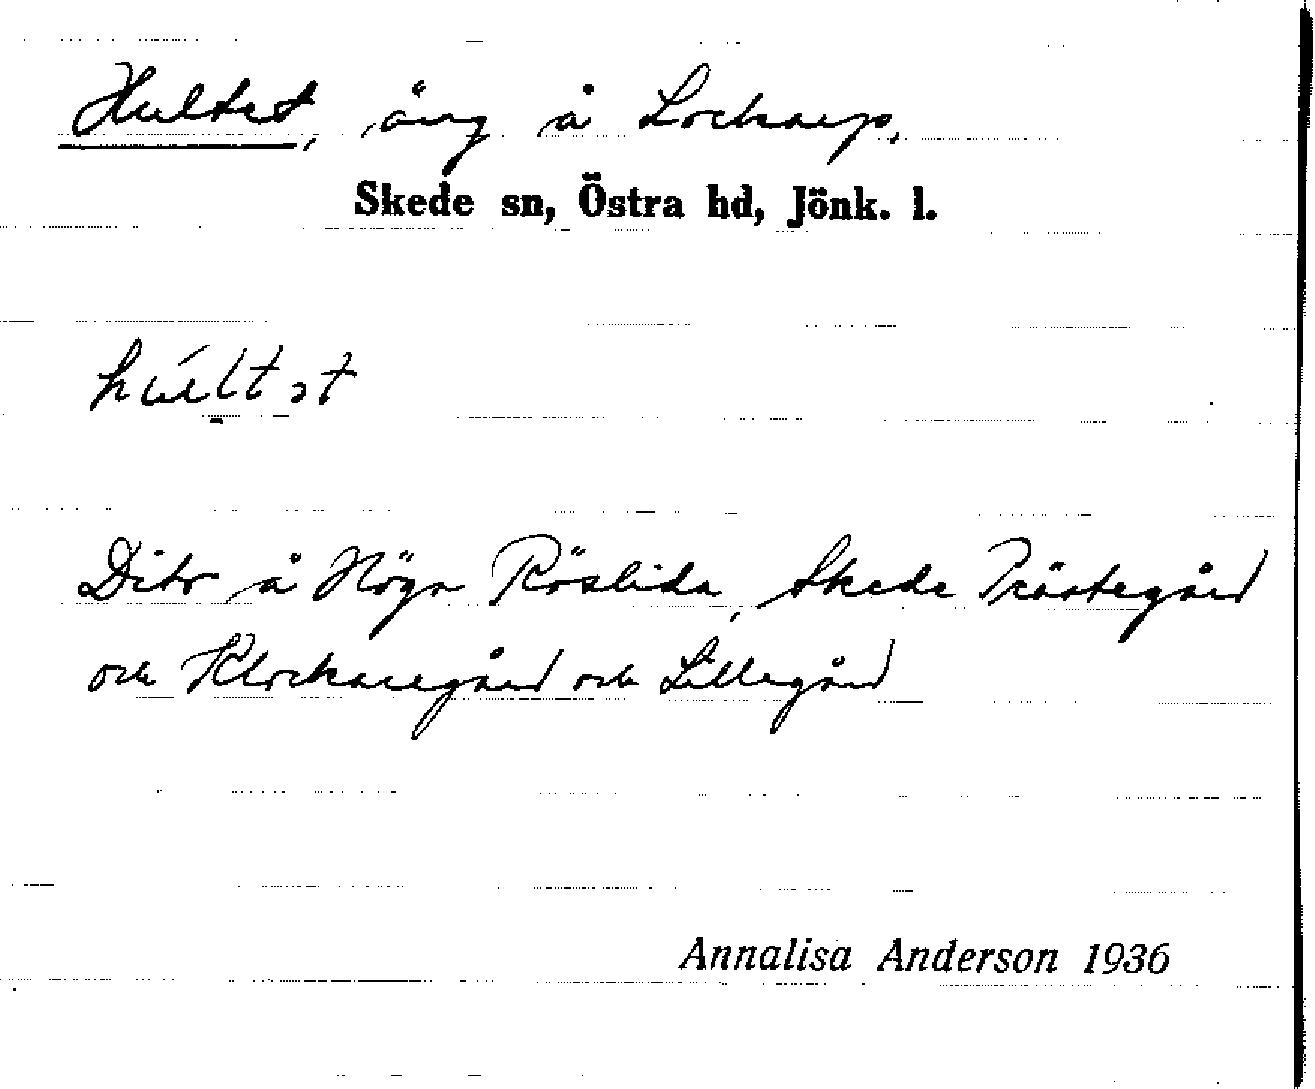 Hultet, äng å Lockarp.
Skede sn, Östra hd, Jönk. l.
húltət
Dito å Höga Röslida, Skede Prästegård
och Klockaregård och Lillegård
Annalisa Anderson 1936